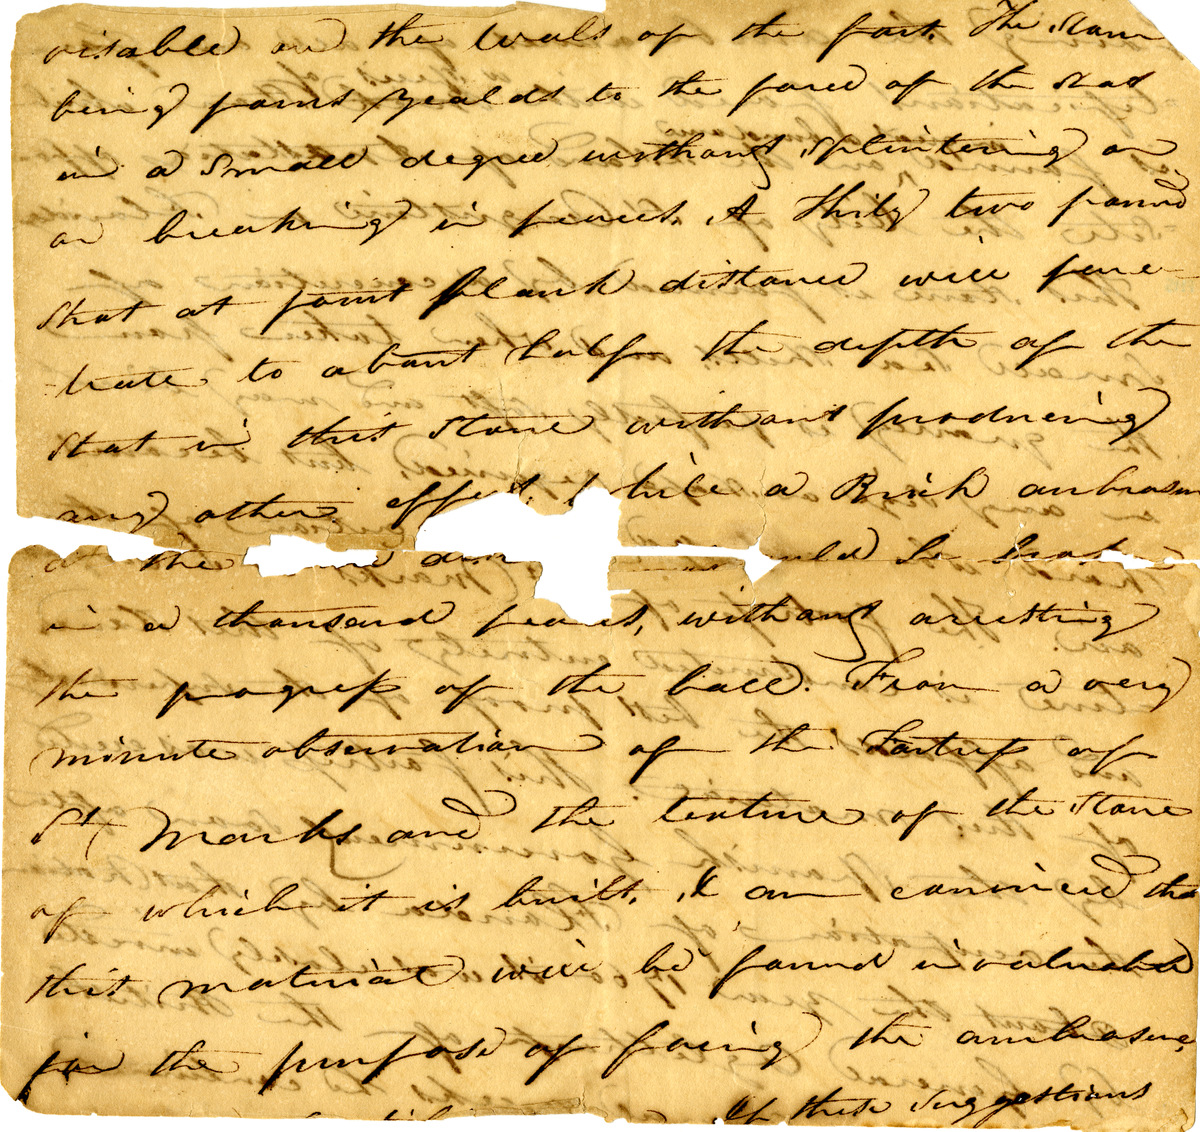 visable on the walls of the fort. The Stone
being porus yealds to the force of the Shot
in a Small degree without Splintering or
or breaking in peaces. A Thity two pound
Shot at point blank distance will pene-
trate to about half the depth of the
Shot in this Stone without producing
any other effect. While a Brick
at the would be
in a thousand peaces, without arresting
the progress of the ball. From a very
minute observation of the Fortress of
St Marks and the texture of the Stone
of which it is built, I am convinced that
this material will be found invaluable
for the purpose of facing the
of these Suggestions